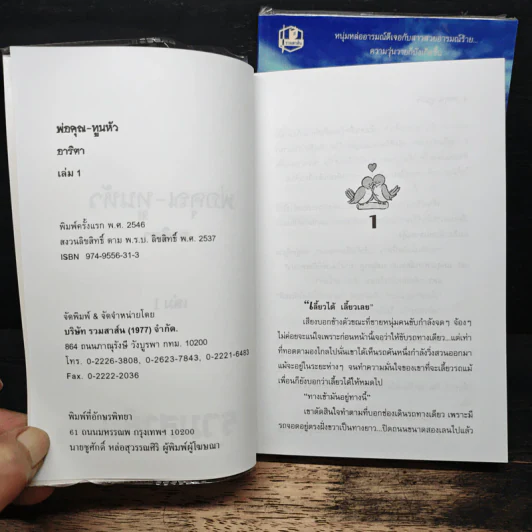 หนุ่มหล่ออารมณ์ดีเจอกับสาวสวยอารมณ์ร้าย...
พ่อคุณ-ทูนหัว
อาริตา
เล่ม 1
พิมพ์ครั้งแรก พ.ศ. 2546
สงวนลิขสิทธิ์ ตาม พ.ร.บ. ลิขสิทธิ์ พ.ศ. 2537
ISBN 974-9556-31-3
จัดพิมพ์ & จัดจำหน่ายโดย
บริษัท รวมสาส์น (1977) จำกัด.
864 ถนนภาณุรังษี วังบูรพา กทม. 10200
โทร. 0-2226-3808, 0-2623-7843, 0-2221-6483
Fax. 0-2222-2036
พิมพ์ที่อักษรพิทยา
61 ถนนมหรรณพ กรุงเทพฯ 10200
นายชูศักดิ์ หล่อสุวรรณศิริ ผู้พิมพ์ผู้โฆษณา
1
"เลี้ยวได้ เลี้ยวเลย"
เสียงบอกข้างตัวขณะที่ชายหนุ่มคนขับกำลังจดๆ จ้องๆ
ไม่ค่อยจะแน่ใจเพราะก่อนหน้านี้เจอว่าให้ขับรถทางเดียว...แต่เท่า
ที่ทอดตามองไกลไปนั่นเขาได้เห็นรถคันหนึ่งกำลังวิ่งสวนออกมา
แม้จะอยู่ในระยะห่างๆ จนทำความมั่นใจของเขาที่จะเลี้ยวรถแม้
เพื่อนก็ยังบอกว่าเลี้ยวได้ให้หมดไป
"ทางเข้ามันอยู่ทางนี้"
เขาตัดสินใจทำตามที่บอกช่องเดินรถทางเดียว เพราะมี
รถจอดอยู่ตรงฝั่งขวาเป็นทางยาว...ปิดถนนขนาดสองเลนไปแล้ว